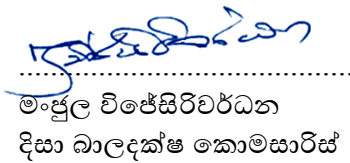 මංජුල විජේසිරිවර්ධන
දිසා බාලදක්ෂ කොමසාරිස්